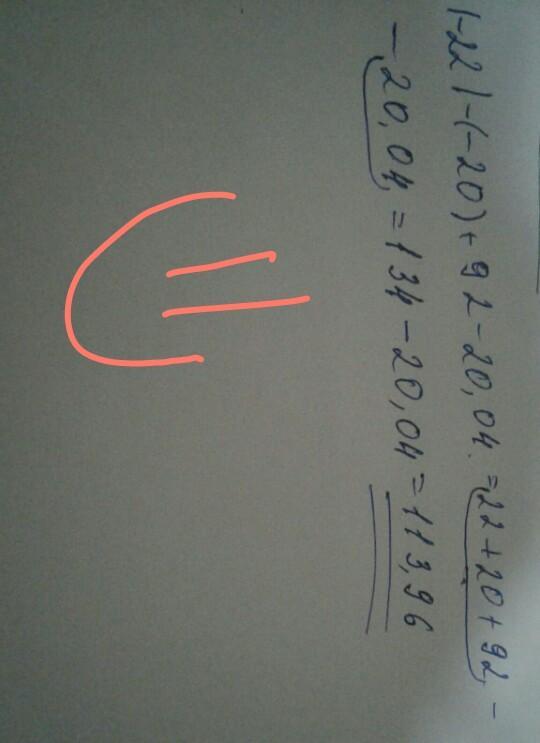 |-22|-(-20)+92-20,04.=22+20+92-
-20,04=134-20,04=113,96